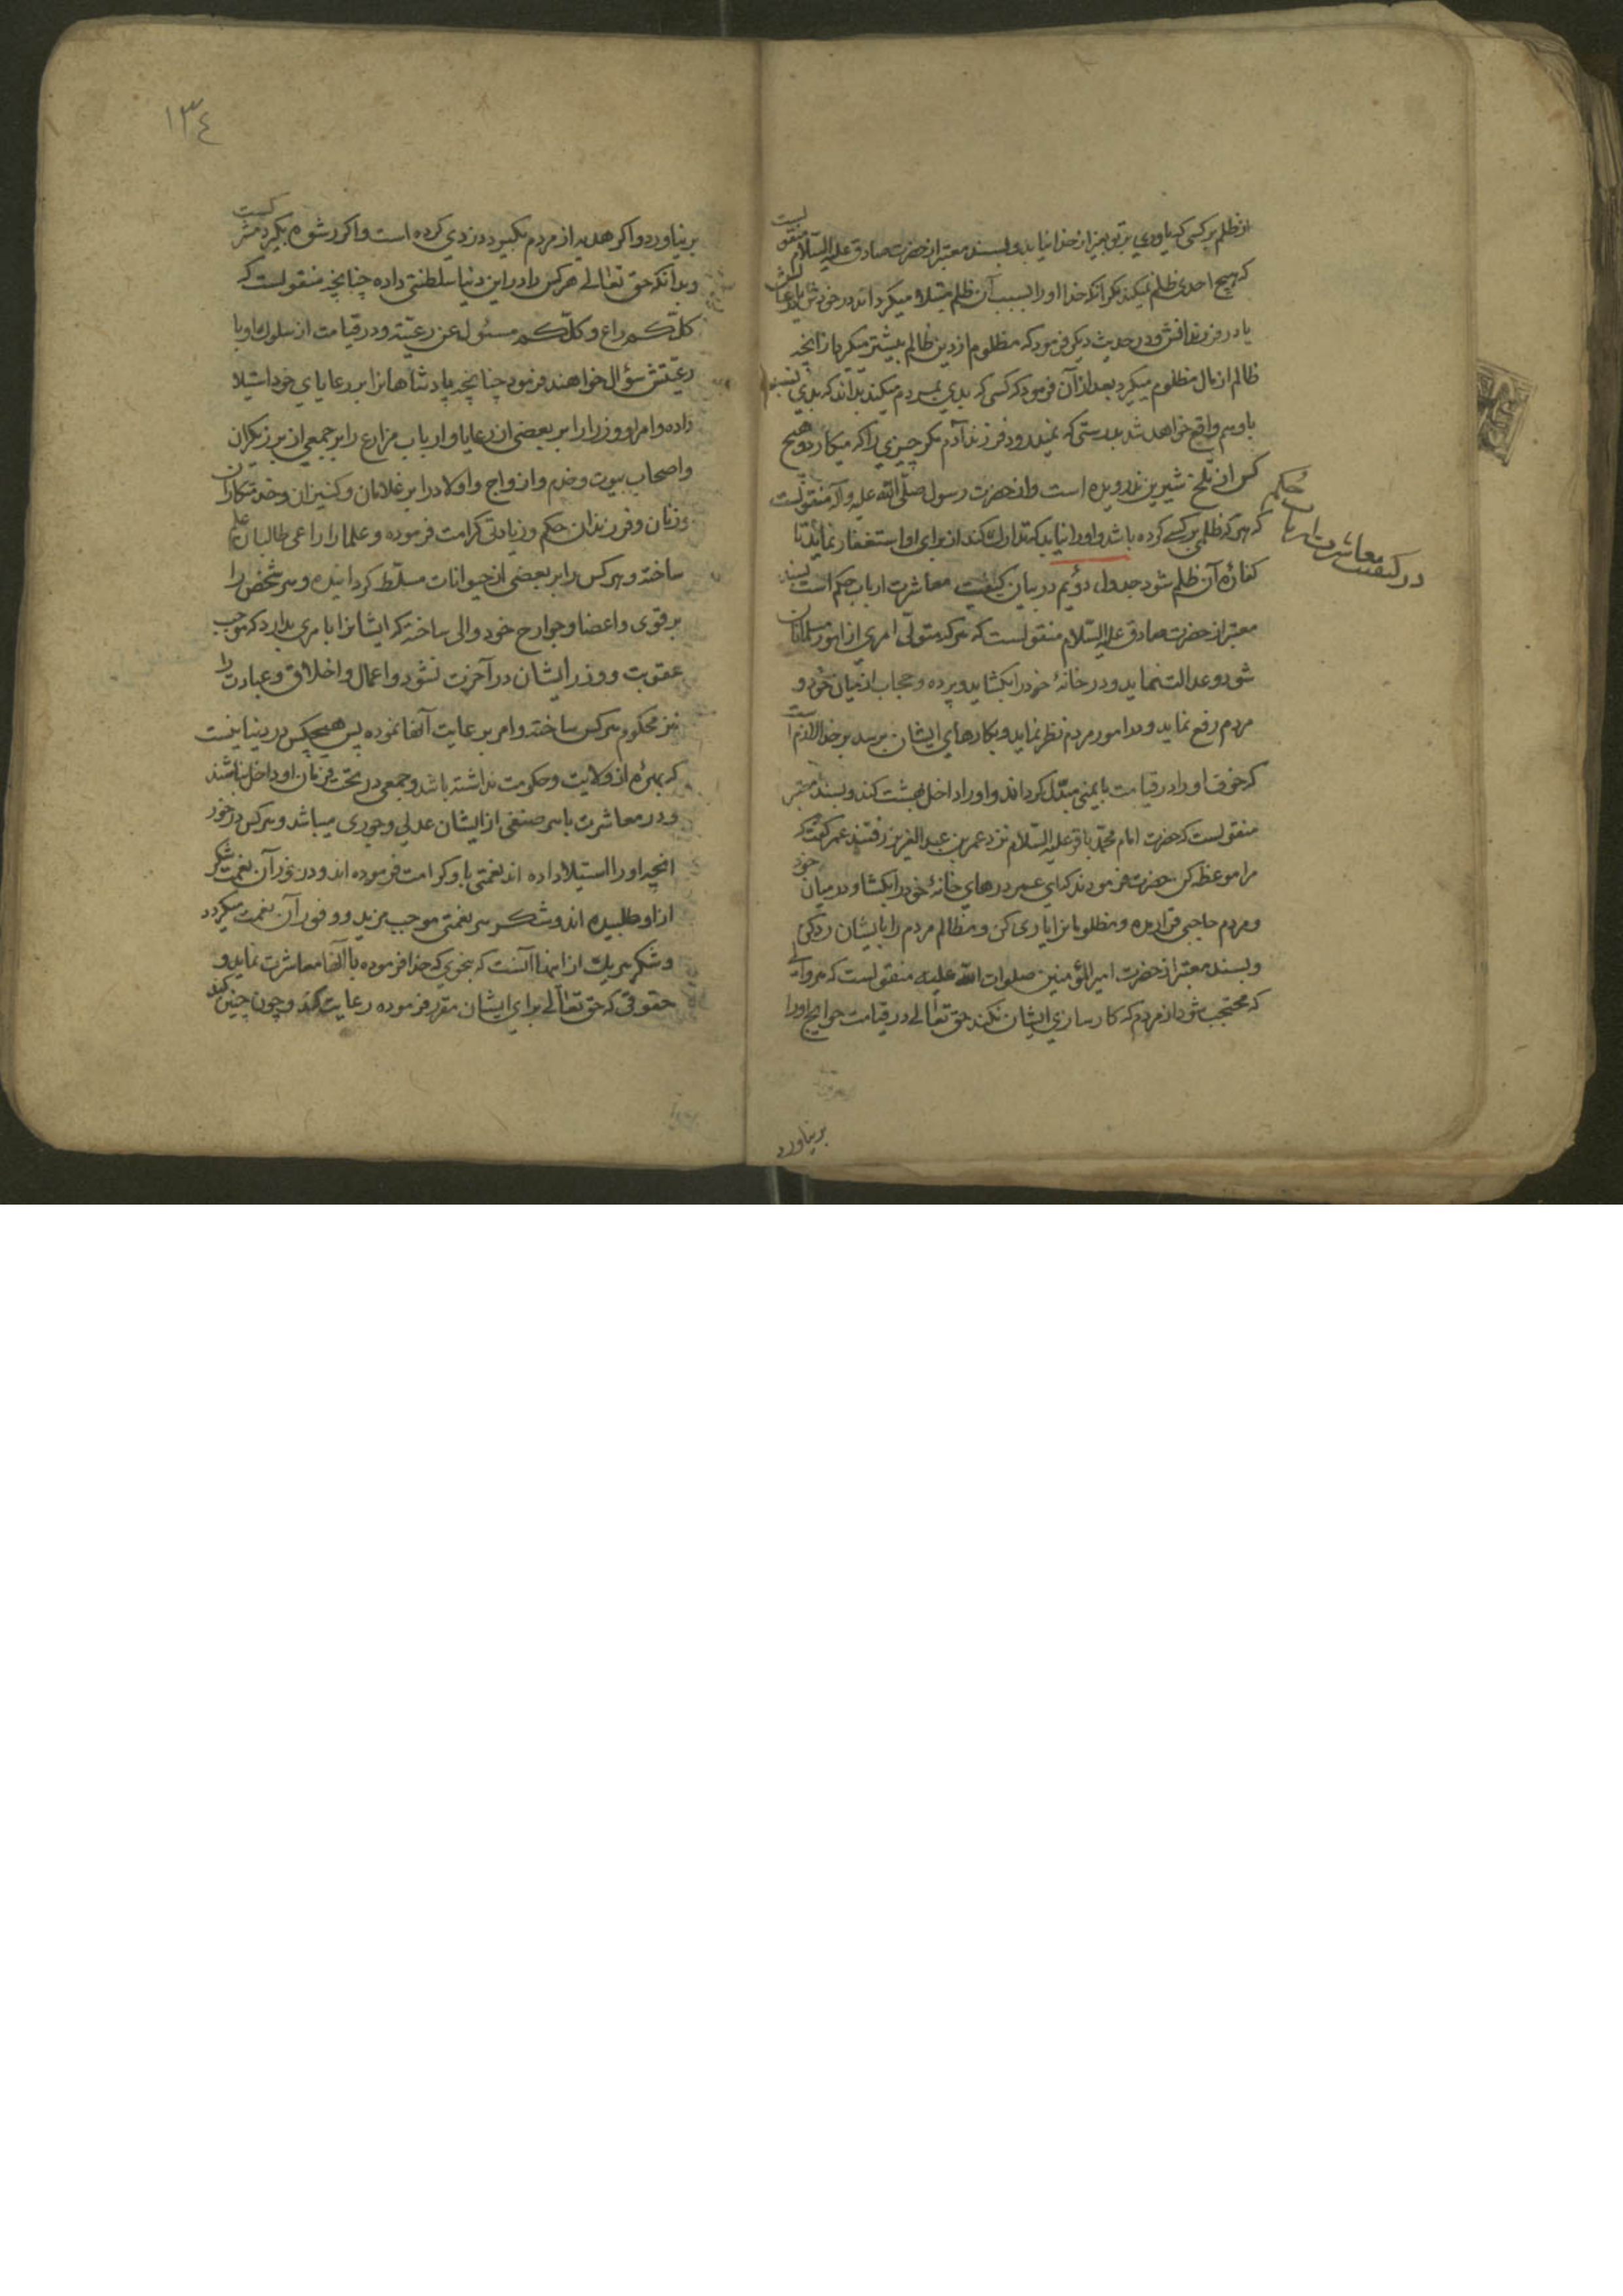 از ظلم بر کسی که یاوری بر تو بغیر از خدا نیابد و بسند معتبر از حضرت صادق علیه السّلام منقولست
که هیچ احدی ظلم نمیکند مکر آنکه خدا او را بسبب آن ظلم مبتلا میکرداند در خودش یا در مالش
یا در فرزندانش و در حدیث دیکر فرمود که مظلوم از دین ظالم بیشتر میکیرد از آنچه
ظالم از مال مظلوم میکیرد بعد از آن فرمود که کسی که بدی بمردم میکند بداند که بدی نسبت
باو هم واقع خواهد شد بدرستی که نمیدرود فرزند آدم مکر چیزی را که میکارد و هیچ
کس از تلخ شیرین ندرویده است و از حضرت رسول صلّی الله علیه و آله منقولست
که هر که ظلمی بر کسی کرده باشد و او را نیابد که تدارک کند از برای او استغفار نماید تا
کفّارهٔ آن ظلم شود جدول دوّیم در بیان کیفیت معاشرت ارباب حکم است بسند
معتبر از حضرت صادق علیه السّلام منقولست که هر که متولّی امری از امور مسلمانان
شود و عدالت نماید و در خانهٔ خود را بکشاید و پرده و حجاب از میان خود و
مردم رفع نماید و در امور مردم نظر نماید و بکارهای ایشان برسد بر خدا لازم است
که خوف او را در قیامت بایمنی مبدّل کرداند و او را داخل بهشت کند و بسند معتبر
منقولست که حضرت امام محمّد باقر علیه السّلام نزد عمر بن عبد العزیز رفتند عمر کفت که
مرا موعظه کن حضرت فرمودند که ای عمر درهای خانهٔ خود را بکشا و در میان خود
و مردم حاجبی قرار مده و مظلومانرا یاری کن و مظالم مردم را بایشان رد کن
و بسند معتبر از حضرت امیر المؤمنین صلوات الله علیه منقولست که هر والی
که محتجب شود از مردم که کارسازی ایشان نکند حق تعالی در قیامت حوایج او را
در کیفیت معاشرت ارباب حکم
بر نیاورد
۱۳٤
بر نیاورد و اکر هدیه از مردم بکیرد دزدی کرده است و اکر رشوه بکیرد مشرکست
و بدانکه حق تعالی هر کس را در این دنیا سلطنتی داده چنانچه منقولست که
کلّکم راع و کلّکم مسئول عن رعیّته و در قیامت از سلوک او با
رعیّتش سؤال خواهند فرمود چنانچه پادشاهانرا بر رعایای خود استیلا
داده و امرا و وزرا را بر بعضی از رعایا و ارباب مزارع را بر جمعی از برزیکران
و اصحاب بیوت و خدم و ازواج و اولاد را بر غلامان و کنیزان و خدمتکاران
و زنان و فرزندان حکم و زیادتی کرامت فرموده و علما را راعی طالبان علم
ساخته و هر کس را بر بعضی از حیوانات مسلّط کردانیده و هر شخص را
بر قوی و اعضا و جوارح خود والی ساخته که ایشانرا بامری بدارد که موجب
عقوبت و وزر ایشان در آخرت نشود و اعمال و اخلاق و عبادت را
نیز محکوم هر کس ساخته و امر برعایت آنها نموده پس هیچکس در دنیا نیست
که بهرهٔ از ولایت و حکومت نداشته باشد و جمعی در تحت فرمان او داخل نباشند
و در معاشرت با هر صنفی از ایشان عدلی و جوری میباشد و هر کس در خور
آنچه او را استیلا داده اند نعمتی باو کرامت فرموده اند و در خور آن نعمت شکر
از او طلبیده اند و شکر هر نعمتی موجب مزید و وفور آن نعمت میکردد
و شکر هر یک از اینها آنست که بنحوی که خدا فرموده با آنها معاشرت نماید و
حقوقی که حق تعالی برای ایشان مقرر فرموده رعایت کند و چون چنین کند